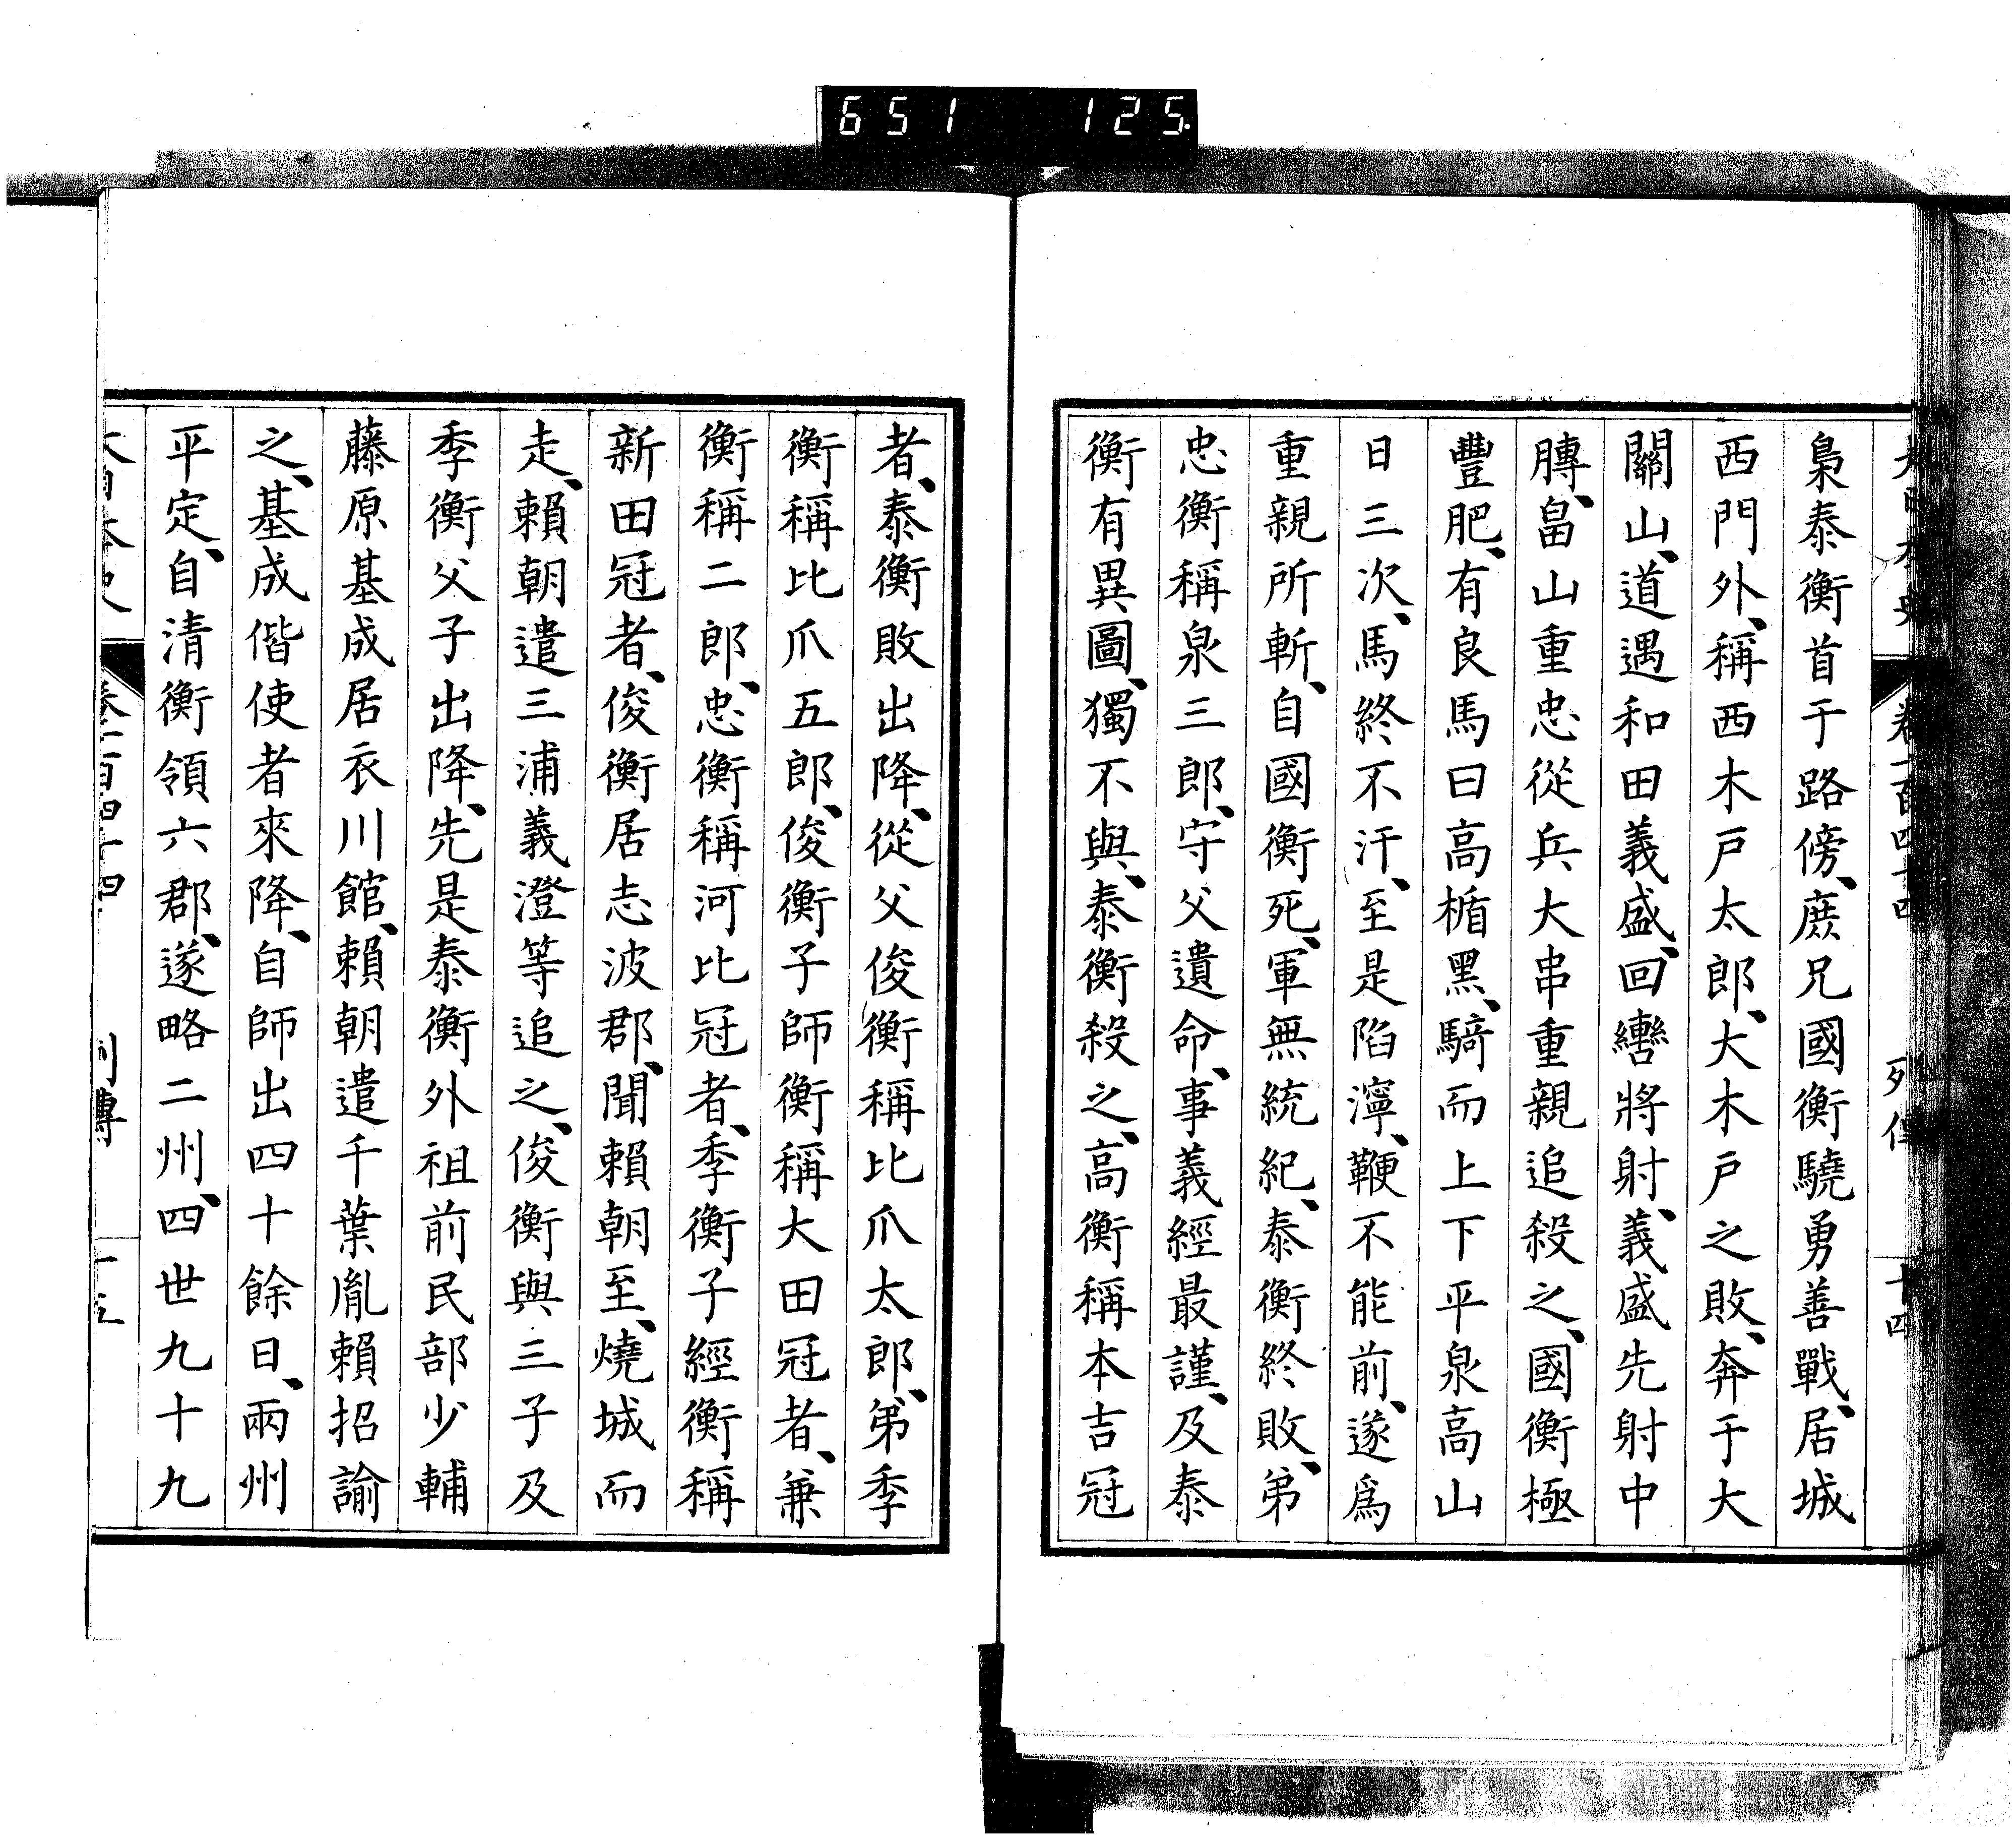 651 125
梟泰衡首于路傍、庶兄國衡驍勇善戰、居城
西門外、稱西木戸太郎、大木戸之敗、奔于大
關山、道遇和田義盛、回轡將射、義盛先射中
膞、畠山重忠從兵大串重親追殺之、國衡極
豐肥、有良馬曰高楯黑、騎而上下平泉高山
日三次、馬終不汗、至是陷濘、鞭不能前、遂爲
重親所斬、自國衡死、軍無統紀、泰衡終敗、弟
忠衡稱泉三郎、守父遺命、事義經最謹、及泰
衡有異圖、獨不與、泰衡殺之、高衡稱本吉冠
者、泰衡敗出降、從父俊衡稱比爪太郎、弟季
衡稱比爪五郎、俊衡子師衡稱大田冠者、兼
衡稱二郎、忠衡稱河比冠者、季衡子經衡稱
新田冠者、俊衡居志波郡、聞賴朝至、燒城而
走、賴朝遣三浦義澄等追之、俊衡與三子及
季衡父子出降、先是泰衡外祖前民部少輔
藤原基成居衣川館、賴朝遣千葉胤賴招諭
之、基成偕使者來降、自師出四十餘日、兩州
平定、自清衡領六郡、遂略二州、四世九十九